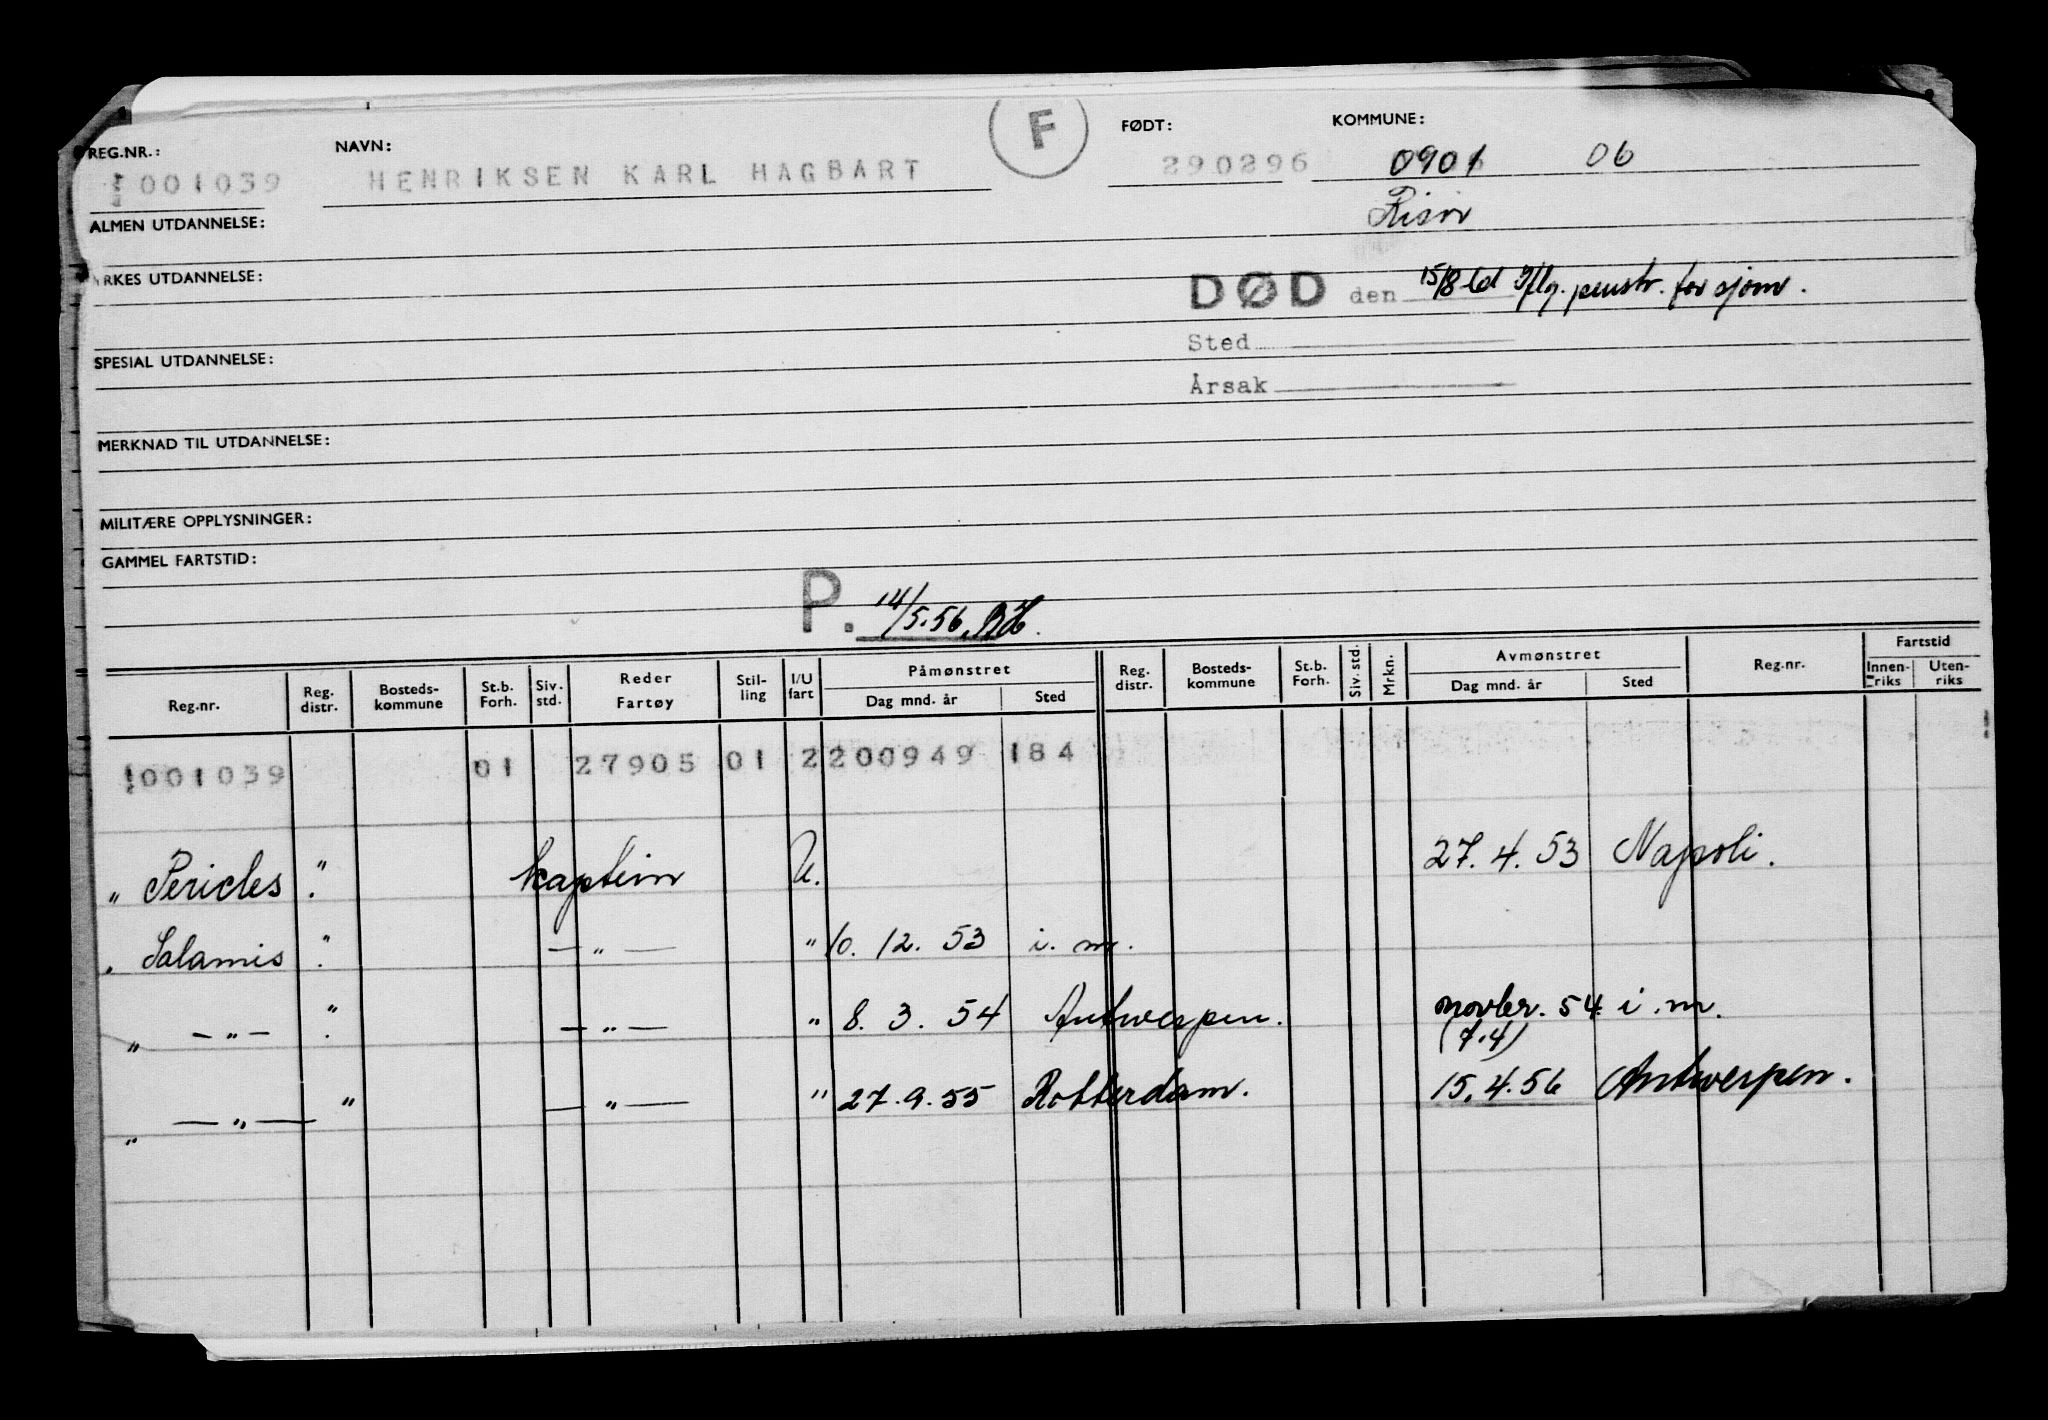 F
REG.NR.: NAVN: FØDT: KOMMUNE:
001039 HENRIKSEN KARL HAGBART 290296 0901 06
Risør
ALMEN UTDANNELSE:
YRKES UTDANNELSE:
DØD den 15/8 61 Iflg. penstr. for sjøm.
Sted
SPESIAL UTDANNELSE:
Årsak
MERKNAD TIL UTDANNELSE:
MILITÆRE OPPLYSNINGER:
GAMMEL FARTSTID:
P. 14/5.56.
Reg.nr. Reg. distr. Bosteds-kommune St.b. Forh. Siv. std. Reder Fartøy Stil-ling I/U fart Påmønstret Dag mnd. år Sted Reg. distr. Bosteds-kommune St.b. Forh. Siv. std. Mrkn. Avmønstret Dag mnd. år Sted Reg.nr. Fartstid Innen-riks Uten-riks
001039 01 27905 01 2 200949 184
" Pericles " kaptein U. 27.4.53 Napoli.
" Salamis " — " — " 10.12.53 i.m.
" — " — " — " — " 8.3.54 Antwerpen. novbr. 54 i.m.
(7.4)
" — " — " — " — " 27.9.55 Rotterdam. 15.4.56 Antwerpen.